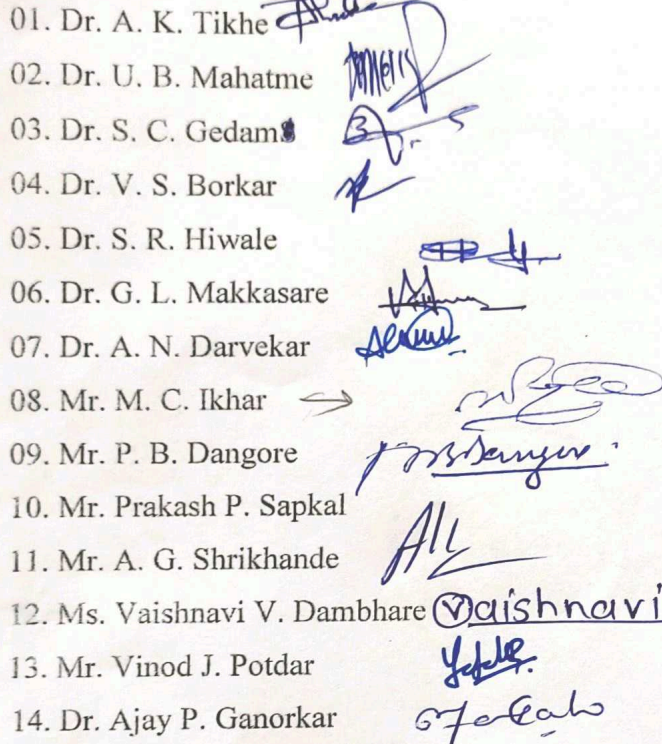 01. Dr. A. K. Tikhe
02. Dr. U. B. Mahatme
03. Dr. S. C. Gedam
04. Dr. V. S. Borkar
05. Dr. S. R. Hiwale
06. Dr. G. L. Makkasare
07. Dr. A. N. Darvekar
08. Mr. M. C. Ikhar →
09. Mr. P. B. Dangore
10. Mr. Prakash P. Sapkal
11. Mr. A. G. Shrikhande
12. Ms. Vaishnavi V. Dambhare Vaishnavi
13. Mr. Vinod J. Potdar
14. Dr. Ajay P. Ganorkar